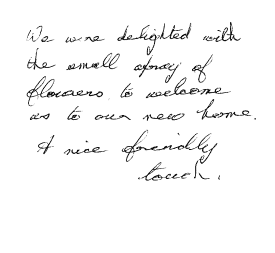 We were delighted with
the small spray of
flowers to welcome
us to our new home.
A nice friendly
touch.